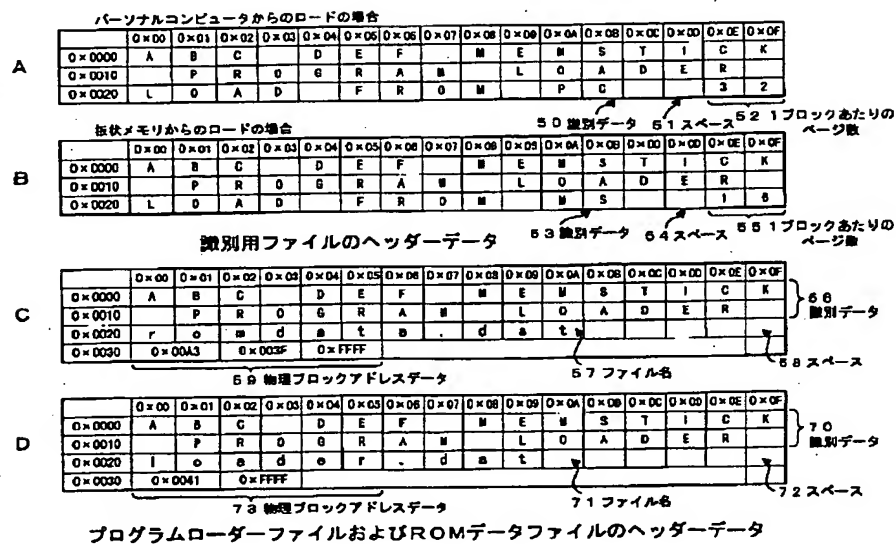 パーソナルコンピュータからのロードの場合
0×00 0×01 0×02 0×03 0×04 0×05 0×06 0×07 0×08 0×09 0×0A 0×0B 0×0C 0×0D 0×0E 0×0F
A
0×0000 A B C D E F M E M S T I C K
0×0010 P R O G R A M L O A D E R
0×0020 L O A D F R O M P C 3 2
50 識別データ 51 スペース 52 1ブロックあたりのページ数
板状メモリからのロードの場合
0×00 0×01 0×02 0×03 0×04 0×05 0×06 0×07 0×08 0×09 0×0A 0×0B 0×0C 0×0D 0×0E 0×0F
B
0×0000 A B C D E F M E M S T I C K
0×0010 P R O G R A M L O A D E R
0×0020 L O A D F R O M M S 1 6
53 識別データ 54 スペース 55 1ブロックあたりのページ数
識別用ファイルのヘッダーデータ
0×00 0×01 0×02 0×03 0×04 0×05 0×06 0×07 0×08 0×09 0×0A 0×0B 0×0C 0×0D 0×0E 0×0F
C
0×0000 A B C D E F M E M S T I C K
0×0010 P R O G R A M L O A D E R
56 識別データ
0×0020 r o m d a t a . d a t
0×0030 0×00A3 0×003F 0×FFFF
59 物理ブロックアドレスデータ 57 ファイル名 58 スペース
0×00 0×01 0×02 0×03 0×04 0×05 0×06 0×07 0×08 0×09 0×0A 0×0B 0×0C 0×0D 0×0E 0×0F
D
0×0000 A B C D E F M E M S T I C K
0×0010 P R O G R A M L O A D E R
70 識別データ
0×0020 l o a d e r . d a t
0×0030 0×0041 0×FFFF
73 物理ブロックアドレスデータ 71 ファイル名 72 スペース
プログラムローダーファイルおよびROMデータファイルのヘッダーデータ